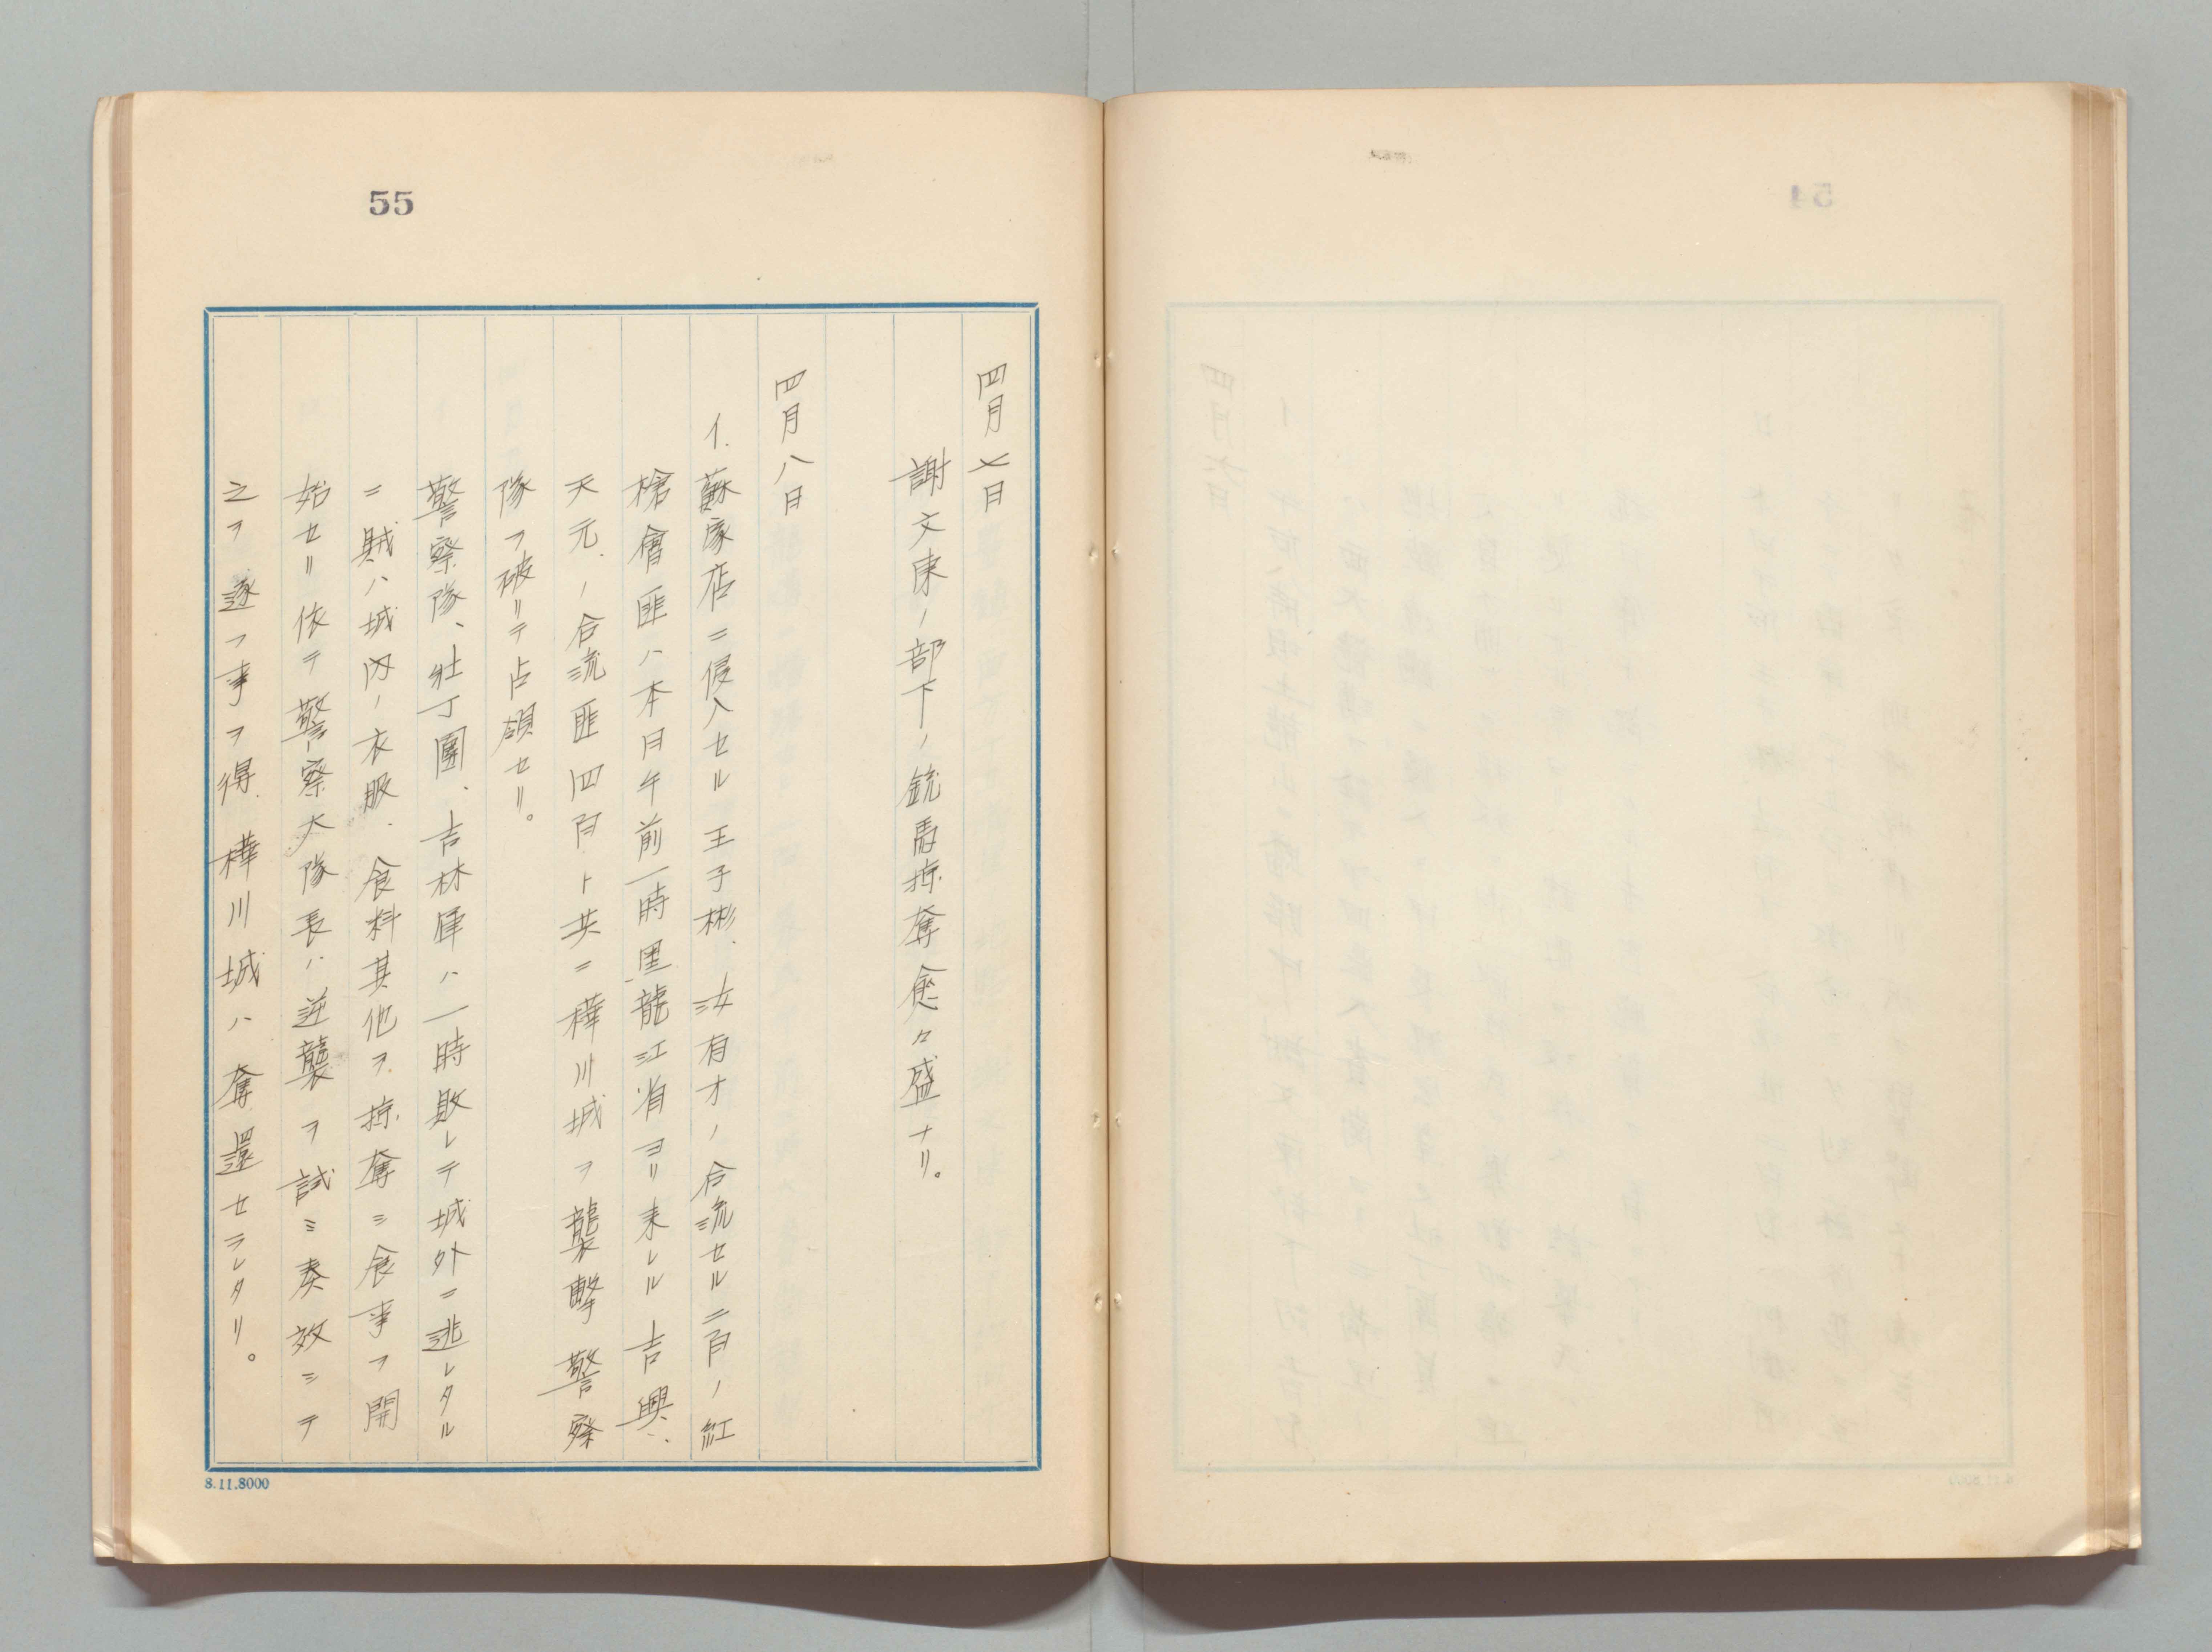 55
四月七日
謝文東ノ部下ノ銃馬掠奪愈々盛ナリ。
四月八日
イ.蘇家店ニ侵入セル王子彬、汝有才ノ合流セル二百ノ紅
槍會匪ハ本日午前一時黒龍江省ヨリ来レル吉興、
天元、ノ合流匪四百ト共ニ樺川城ヲ襲撃警察
隊ヲ破リテ占領セリ。
警察隊、壮丁團、吉林軍ハ一時敗レテ城外ニ逃レタル
ニ賊ハ城内ノ衣服、食料其他ヲ掠奪シ食事ヲ開
始セリ依テ警察大隊長ハ逆襲ヲ試ミ奏效シテ
之ヲ逐フ事ヲ得、樺川城ハ奪還セラレタリ。
8.11.8000
54